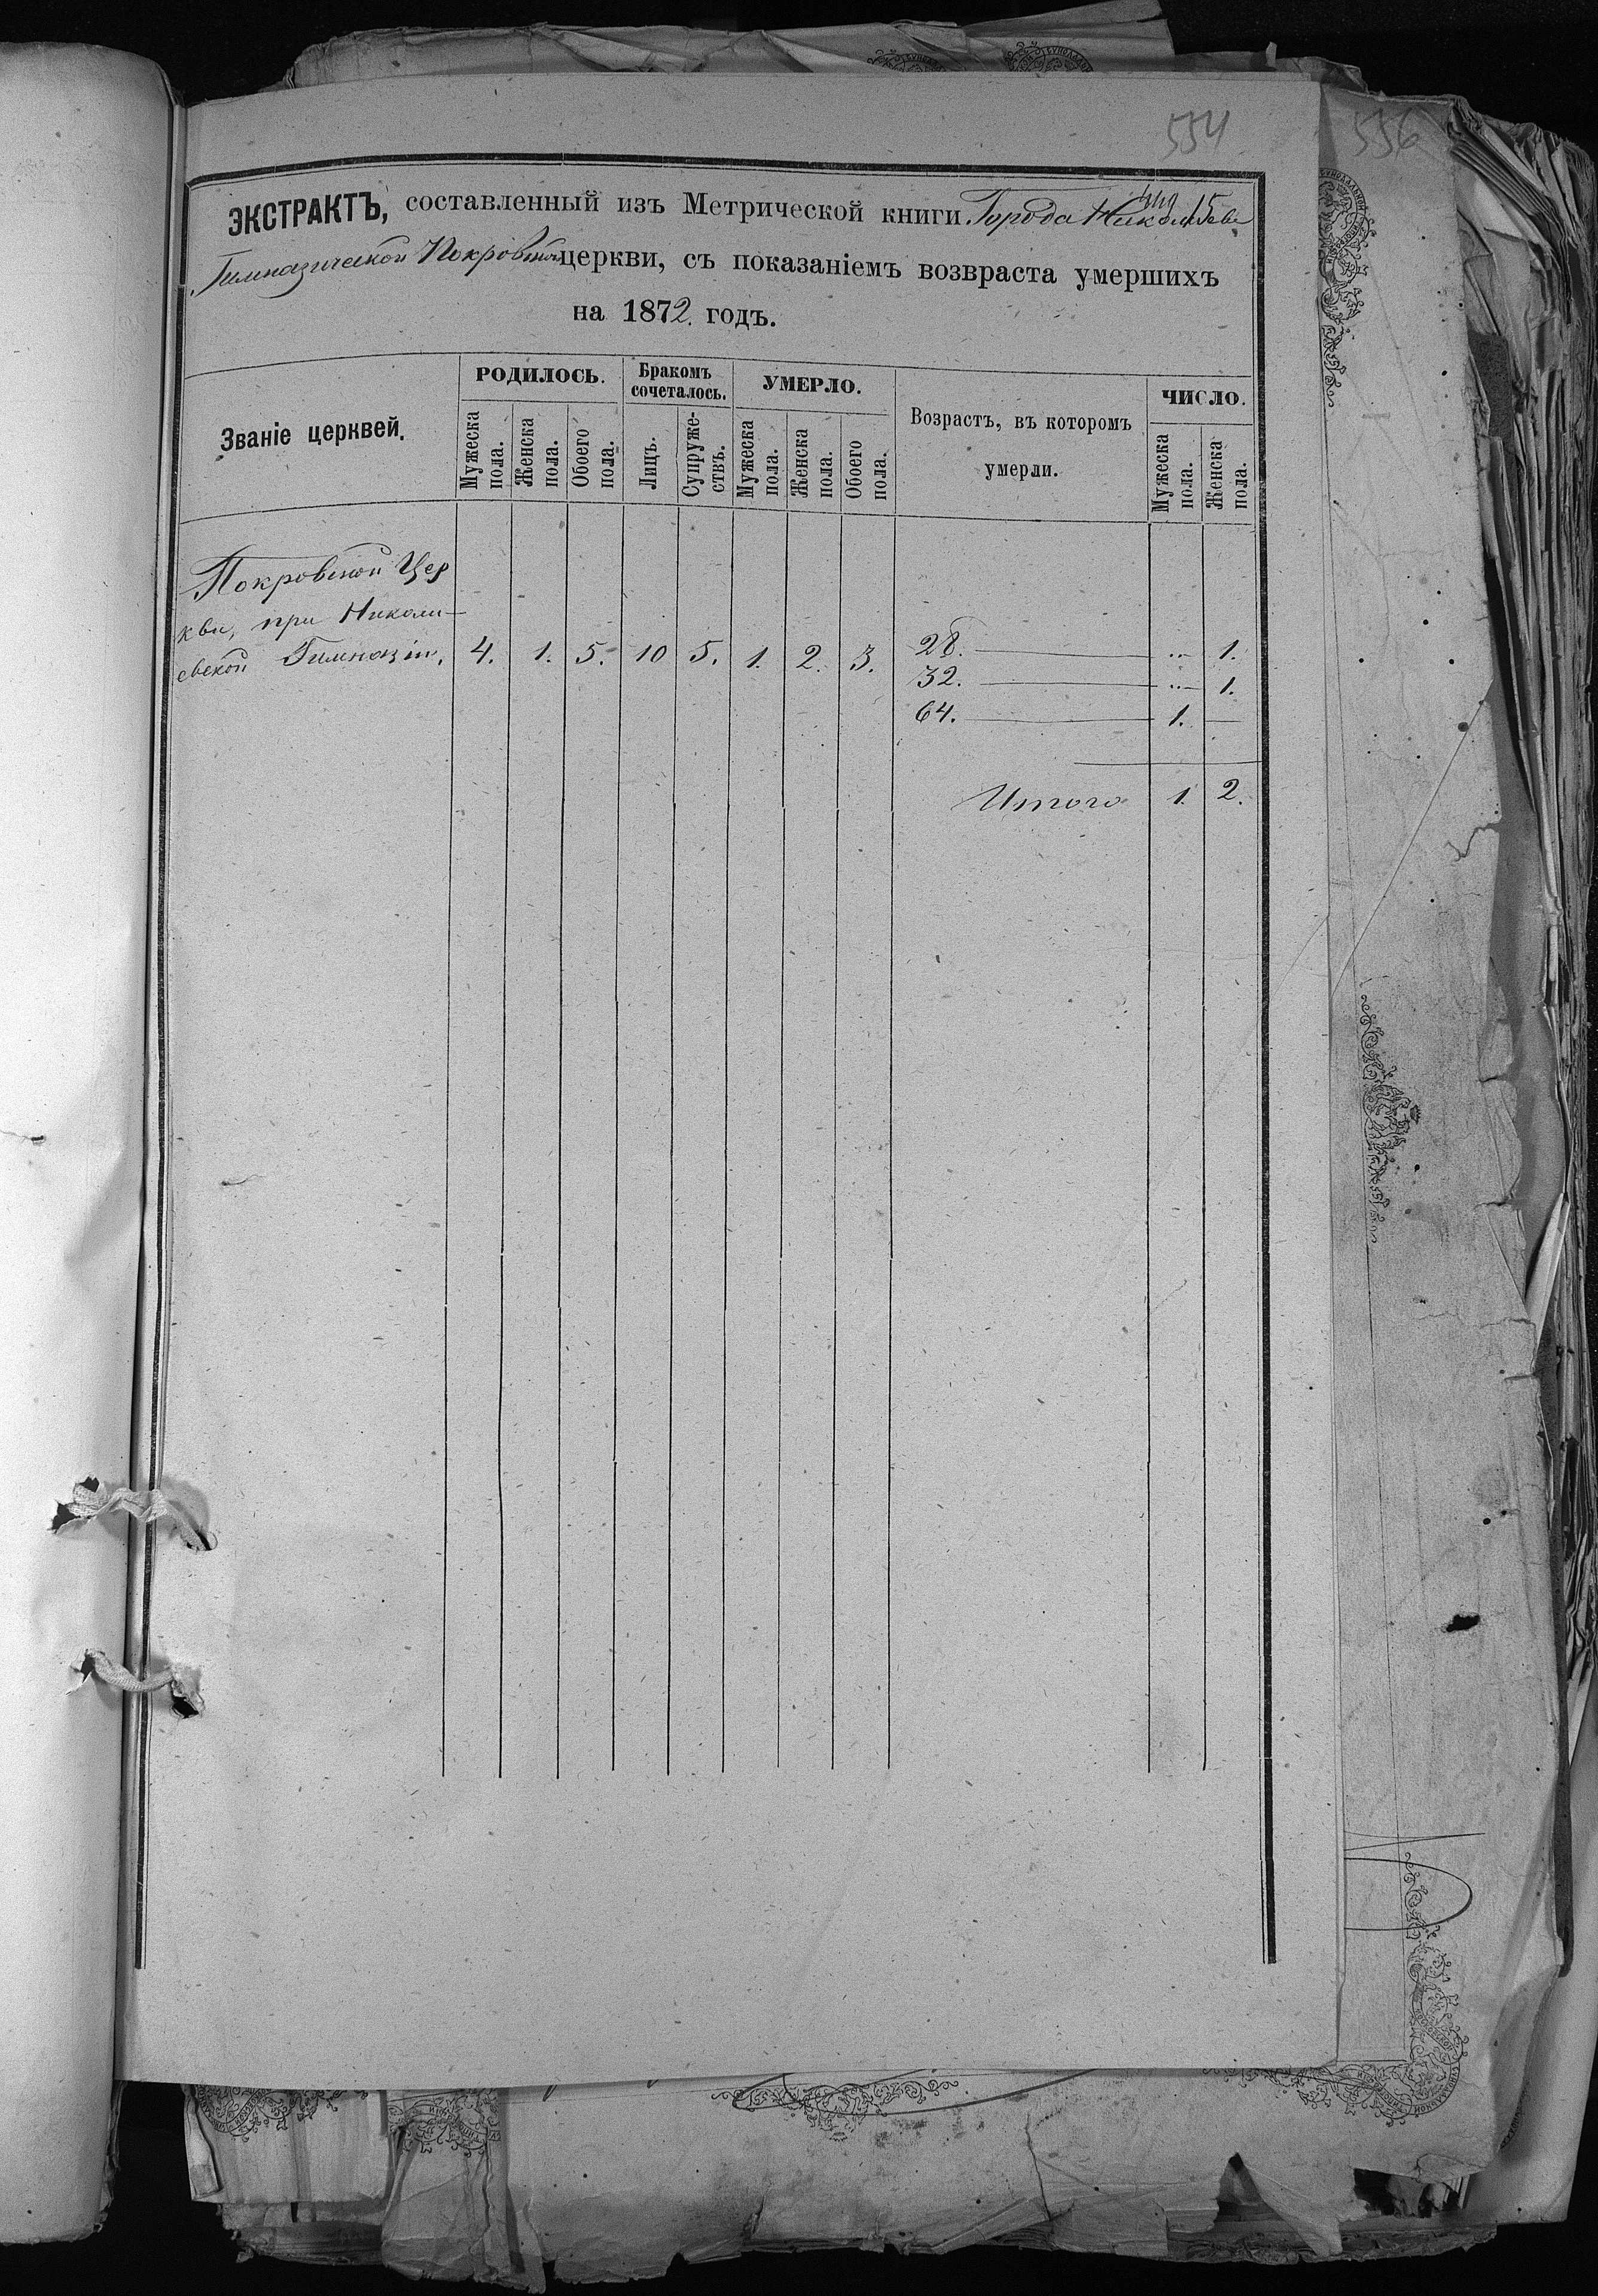 554
556
ЭКСТРАКТЪ, составленный изъ Метрической книги Города Николаева
Гимназической Покровской церкви, съ показаніемъ возвраста умершихъ
на 1872. годъ.
Званіе церквей.
РОДИЛОСЬ.
Мужеска пола.
Женска пола.
Обоего пола.
Бракомъ сочеталось.
Лицъ.
Супружествъ.
УМЕРЛО.
Мужеска пола.
Женска пола.
Обоего пола.
Возрастъ, въ которомъ
умерли.
ЧИСЛО.
Мужеска пола.
Женска пола.
Покровской Цер
кви, при Никола-
евской Гимназіи, 4. 1. 5. 10 5. 1. 2. 3. 28. — .. 1.
32. — .. 1.
64. — 1. —
Итого 1. 2.